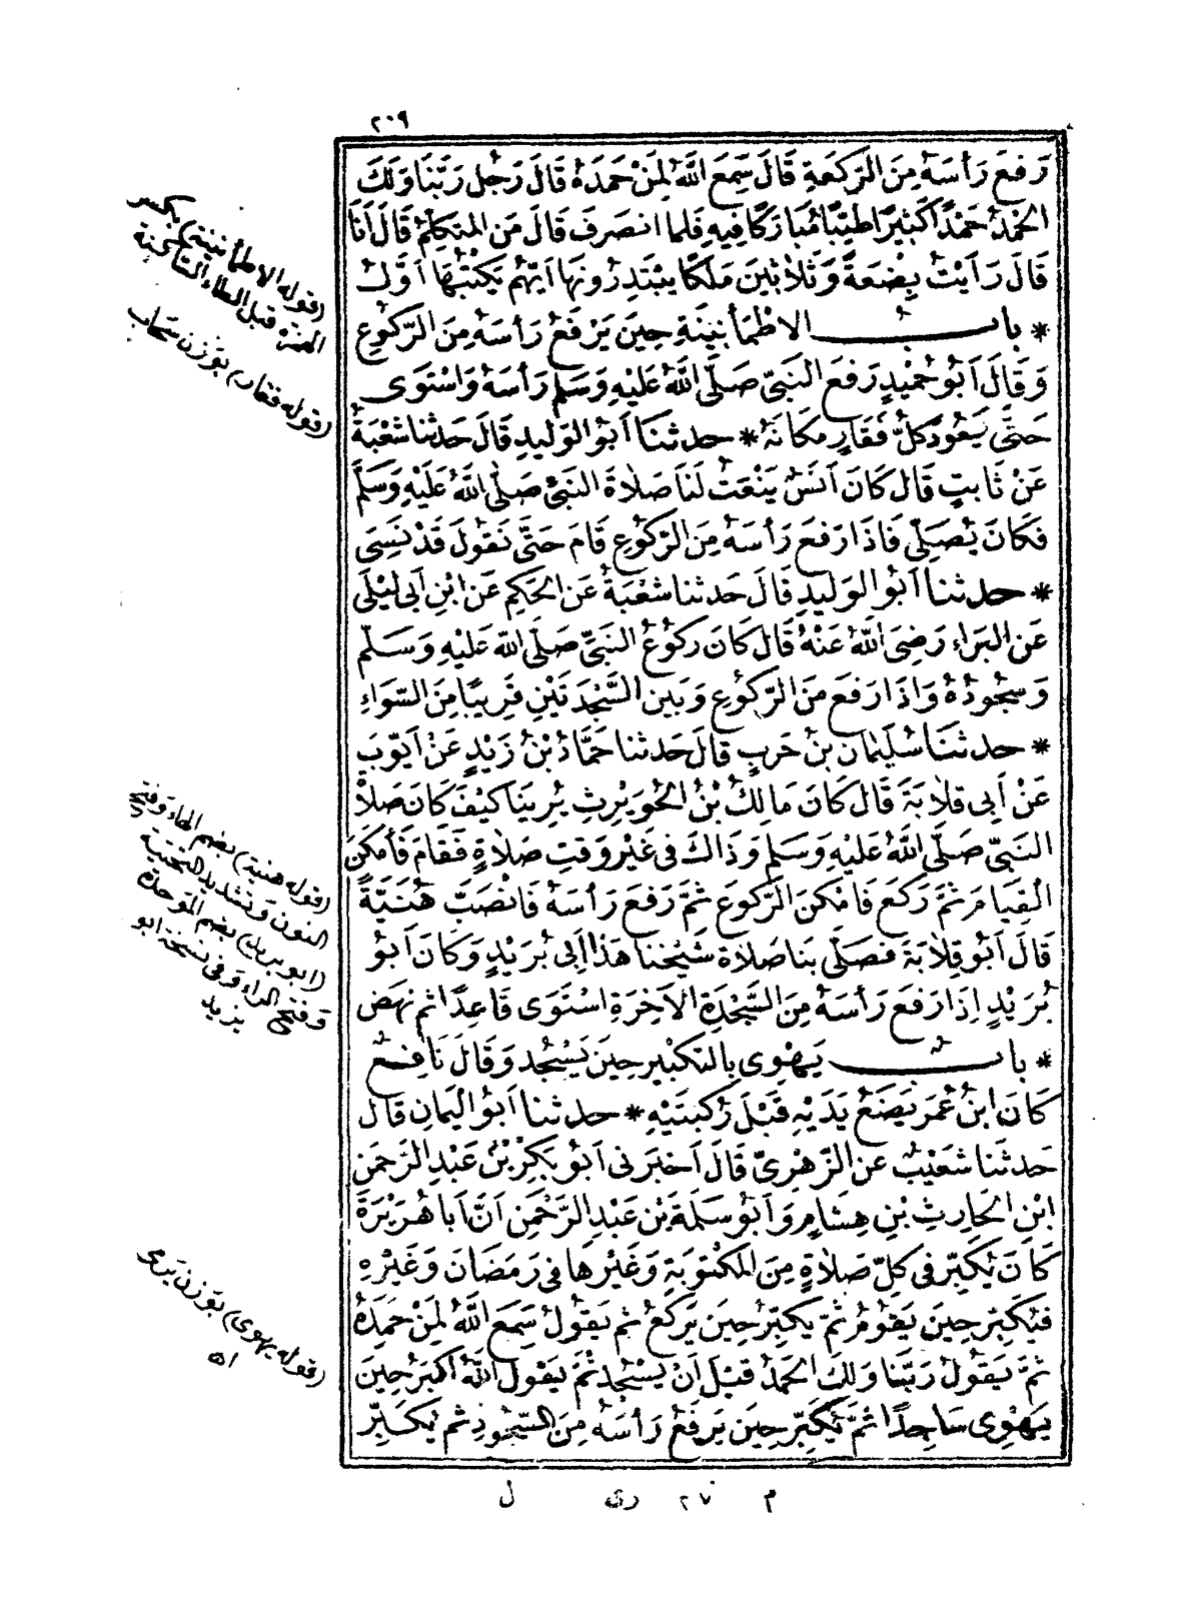 ٢٠٩
رَفَعَ رَأْسَهُ مِنَ الرَّكْعَةِ قَالَ سَمِعَ اللَّهُ لِمَنْ حَمِدَهُ قَالَ رَجُلٌ رَبَّنَا وَلَكَ
الْحَمْدُ حَمْدًا كَثِيرًا طَيِّبًا مُبَارَكًا فِيهِ فَلَمَّا انْصَرَفَ قَالَ مَنِ الْمُتَكَلِّمُ قَالَ أَنَا
قَالَ رَأَيْتُ بِضْعَةً وَثَلَاثِينَ مَلَكًا يَبْتَدِرُونَهَا أَيُّهُمْ يَكْتُبُهَا أَوَّلُ
* بابُ الِاطْمَأْنِينَةِ حِينَ يَرْفَعُ رَأْسَهُ مِنَ الرُّكُوعِ
وَقَالَ أَبُو حُمَيْدٍ رَفَعَ النَّبِيُّ صَلَّى اللَّهُ عَلَيْهِ وَسَلَّمَ رَأْسَهُ وَاسْتَوَى
حَتَّى يَعُودَ كُلُّ فَقَارٍ مَكَانَهُ * حدثنا أَبُو الْوَلِيدِ قَالَ حَدَّثَنَا شُعْبَةُ
عَنْ ثَابِتٍ قَالَ كَانَ أَنَسٌ يَنْعَتُ لَنَا صَلَاةَ النَّبِيِّ صَلَّى اللَّهُ عَلَيْهِ وَسَلَّمَ
فَكَانَ يُصَلِّي فَإِذَا رَفَعَ رَأْسَهُ مِنَ الرُّكُوعِ قَامَ حَتَّى نَقُولَ قَدْ نَسِيَ
* حدثنا أَبُو الْوَلِيدِ قَالَ حَدَّثَنَا شُعْبَةُ عَنِ الْحَكَمِ عَنِ ابْنِ أَبِي لَيْلَى
عَنِ الْبَرَاءِ رَضِيَ اللَّهُ عَنْهُ قَالَ كَانَ رُكُوعُ النَّبِيِّ صَلَّى اللَّهُ عَلَيْهِ وَسَلَّمَ
وَسُجُودُهُ وَإِذَا رَفَعَ مِنَ الرُّكُوعِ وَبَيْنَ السَّجْدَتَيْنِ قَرِيبًا مِنَ السَّوَاءِ
* حدثنا سُلَيْمَانُ بْنُ حَرْبٍ قَالَ حَدَّثَنَا حَمَّادُ بْنُ زَيْدٍ عَنْ أَيُّوبَ
عَنْ أَبِي قِلَابَةَ قَالَ كَانَ مَالِكُ بْنُ الْحُوَيْرِثِ يُرِينَا كَيْفَ كَانَ صَلَاةُ
النَّبِيِّ صَلَّى اللَّهُ عَلَيْهِ وَسَلَّمَ وَذَاكَ فِي غَيْرِ وَقْتِ صَلَاةٍ فَقَامَ فَأَمْكَنَ
الْقِيَامَ ثُمَّ رَكَعَ فَأَمْكَنَ الرُّكُوعَ ثُمَّ رَفَعَ رَأْسَهُ فَانْصَبَّ هُنَيَّةً
قَالَ أَبُو قِلَابَةَ فَصَلَّى بِنَا صَلَاةَ شَيْخِنَا هَذَا أَبِي بُرَيْدٍ وَكَانَ أَبُو
بُرَيْدٍ إِذَا رَفَعَ رَأْسَهُ مِنَ السَّجْدَةِ الْآخِرَةِ اسْتَوَى قَاعِدًا ثُمَّ نَهَضَ
* بابُ يَهْوِي بِالتَّكْبِيرِ حِينَ يَسْجُدُ وَقَالَ نَافِعٌ
كَانَ ابْنُ عُمَرَ يَضَعُ يَدَيْهِ قَبْلَ رُكْبَتَيْهِ * حدثنا أَبُو الْيَمَانِ قَالَ
حَدَّثَنَا شُعَيْبٌ عَنِ الزُّهْرِيِّ قَالَ أَخْبَرَنِي أَبُو بَكْرِ بْنُ عَبْدِ الرَّحْمَنِ
ابْنِ الْحَارِثِ بْنِ هِشَامٍ وَأَبُو سَلَمَةَ بْنُ عَبْدِ الرَّحْمَنِ أَنَّ أَبَا هُرَيْرَةَ
كَانَ يُكَبِّرُ فِي كُلِّ صَلَاةٍ مِنَ الْمَكْتُوبَةِ وَغَيْرِهَا فِي رَمَضَانَ وَغَيْرِهِ
فَيُكَبِّرُ حِينَ يَقُومُ ثُمَّ يُكَبِّرُ حِينَ يَرْكَعُ ثُمَّ يَقُولُ سَمِعَ اللَّهُ لِمَنْ حَمِدَهُ
ثُمَّ يَقُولُ رَبَّنَا وَلَكَ الْحَمْدُ قَبْلَ أَنْ يَسْجُدَ ثُمَّ يَقُولُ اللَّهُ أَكْبَرُ حِينَ
يَهْوِي سَاجِدًا ثُمَّ يُكَبِّرُ حِينَ يَرْفَعُ رَأْسَهُ مِنَ السُّجُودِ ثُمَّ يُكَبِّرُ
(قوله الاطمأنينة) بكسر
الهمزة قبل الطاء الساكنة
(قوله فقار) بوزن سحاب
(قوله هنية) بضم الهاء وفتح
النون وتشديد التحتية
(ابو بريد) بضم الموحدة
وفتح الراء وفي نسخة ابو
يزيد
(قوله يهوى) بوزن يرمى
اه
م ٢٧ رى ل